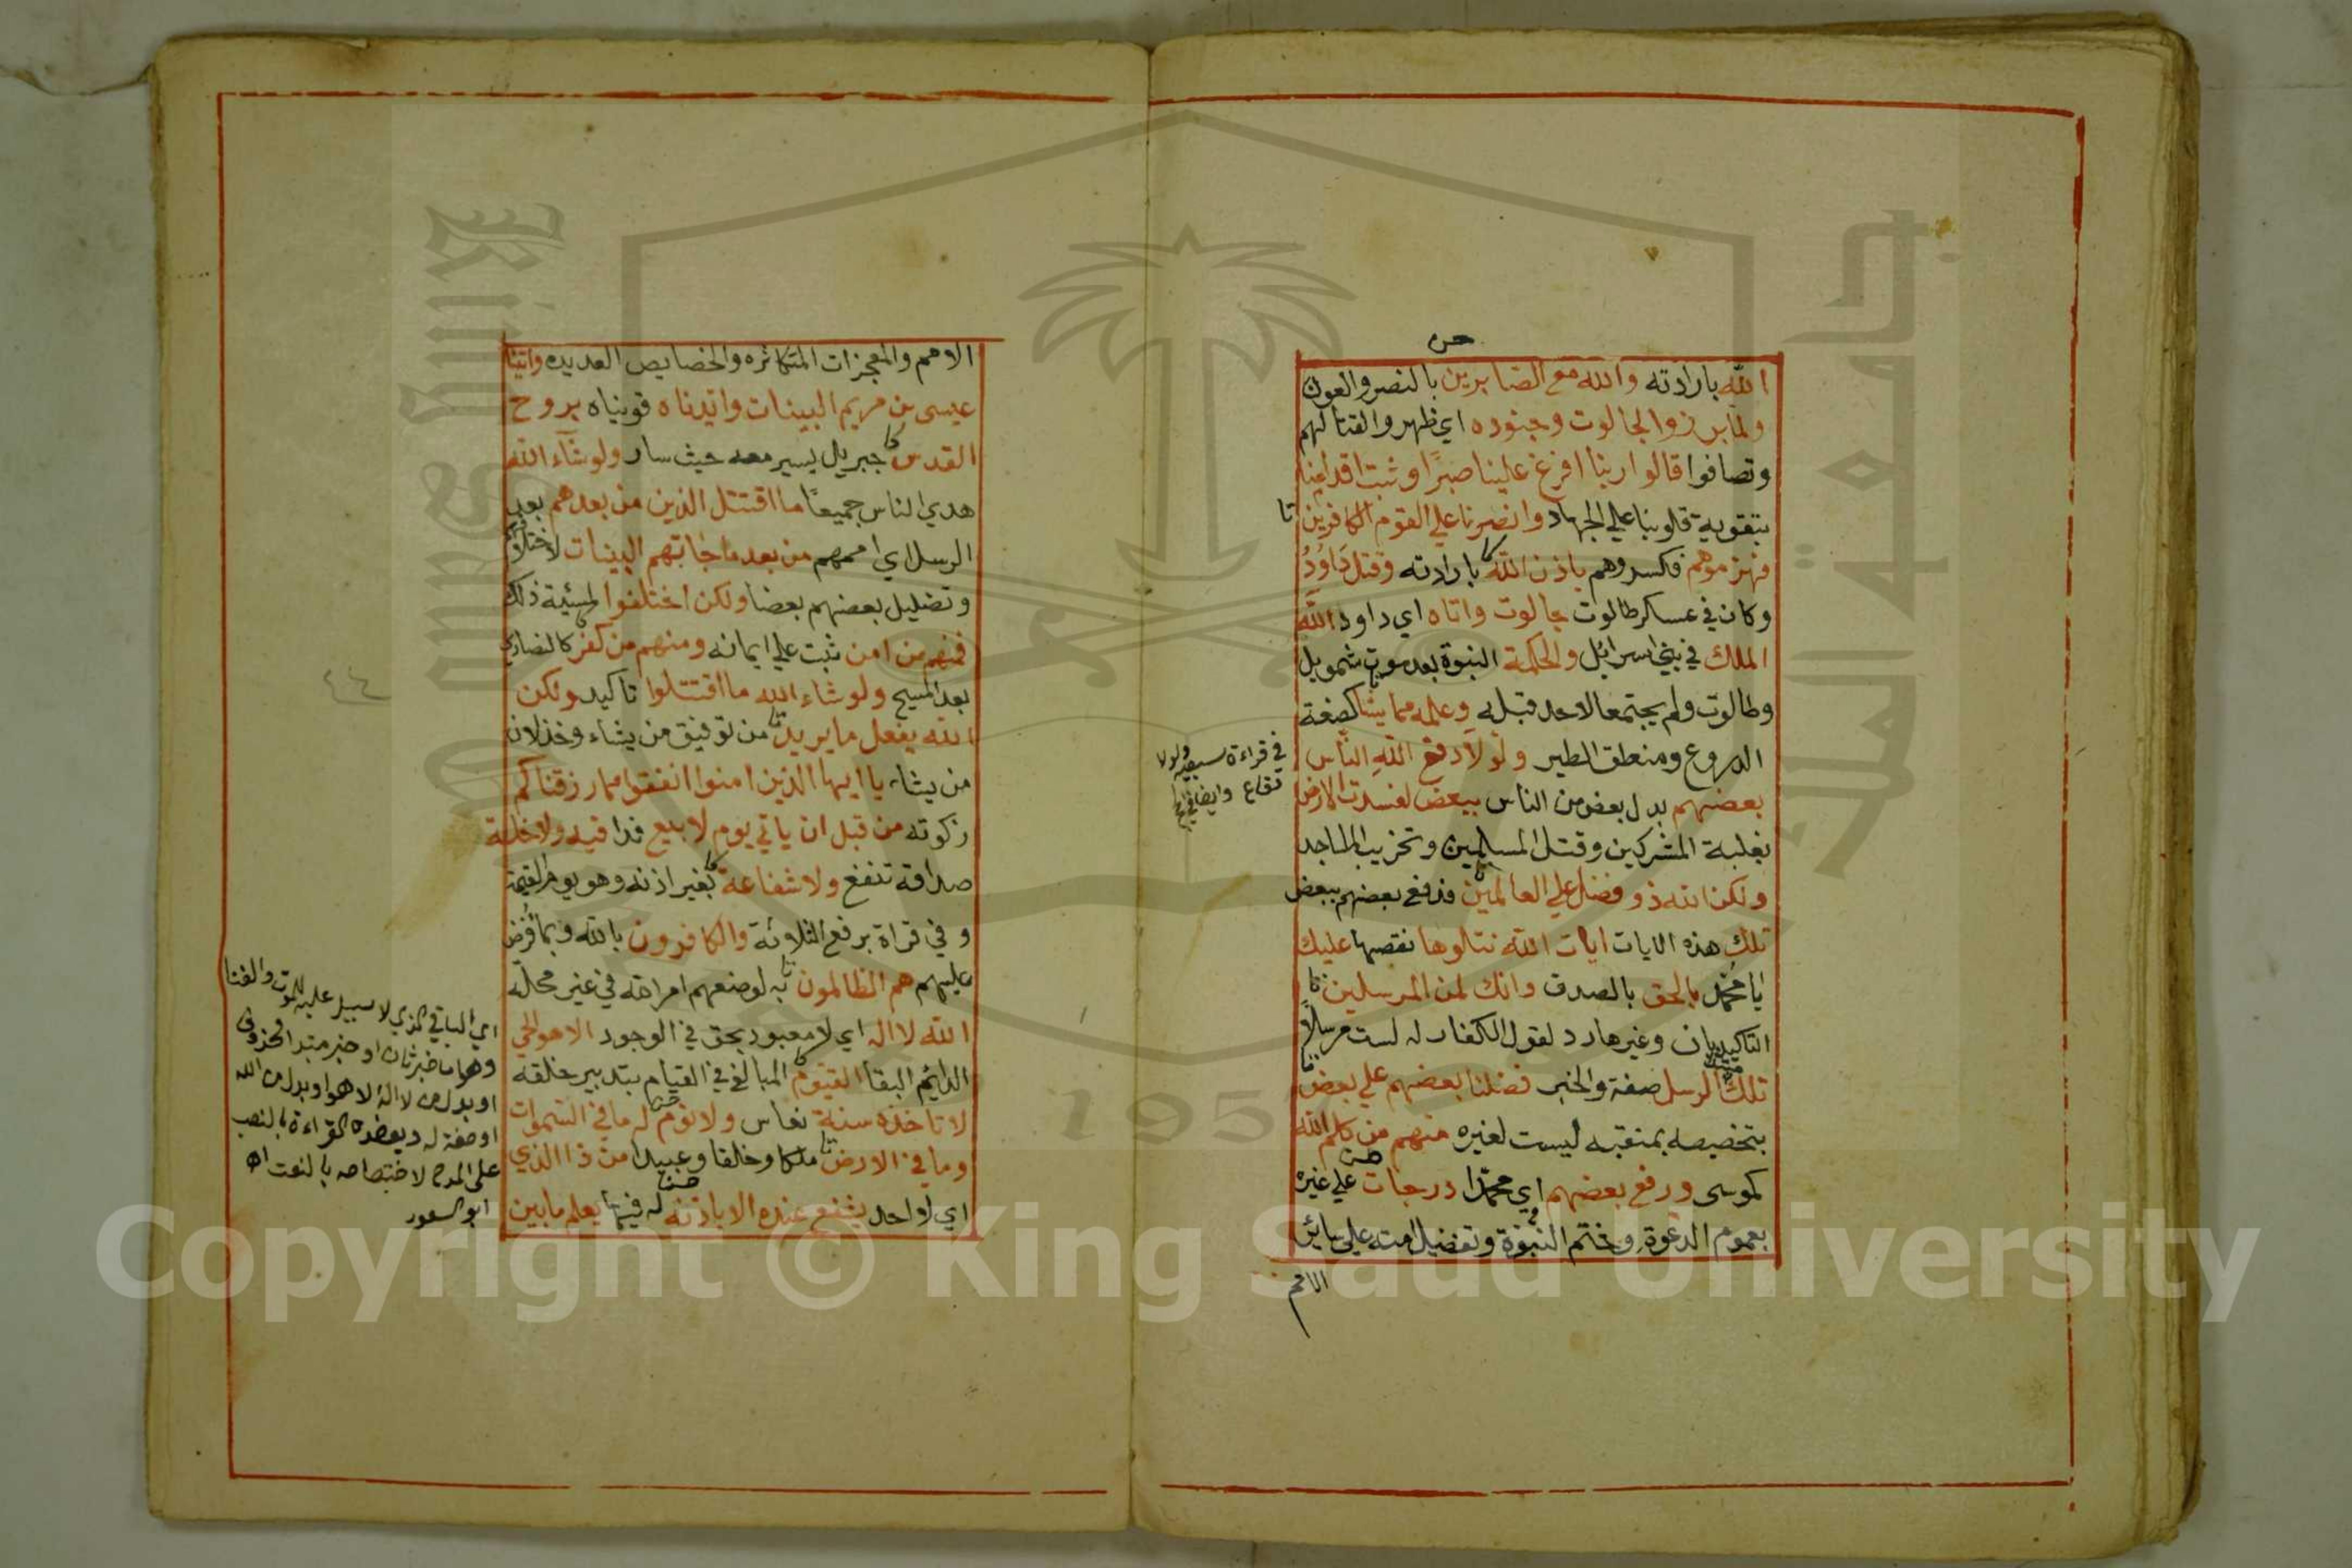 الله بارادته والله مع الصابرين بالنصر والعون
ولما برزوا لجالوت وجنوده اي ظهروا لقتالهم
وتصافوا قالوا ربنا افرغ علينا صبرًا وثبت اقدامنا
بتقوية قلوبنا علي الجهاد وانصرنا علي القوم الكافرين
فهزموهم فكسروهم باذن الله بارادته وقتل دَاوُدُ
وكان في عسكر طالوت جالوت واتاه اي داود الله
الملك في بني اسرائل والحكمة النبوة بعد موت شمويل
وطالوت ولم يجتمعا لاحد قبله وعلمه مما يشا كصنعة
الدروع ومنطق الطير ولولا دفع الله الناس
بعضهم بدل بعض من الناس ببعض لفسدت الارض
بغلبة المشركين وقتل المسلمين وتخريب المساجد
ولكن الله ذو فضل علي العالمين فدفع بعضهم ببعض
تلك هذه الايات ايات الله نتلوها نقصها عليك
يا محمد بالحق بالصدق وانك لمن المرسلين
التاكيد بان وغيرها رد لقول الكفار له لست مرسلاً
تلك الرسل صفة والخبر فضلنا بعضهم علي بعض
بتخصيصه بمنقبه ليست لغيره منهم من كلم الله
كموسى ورفع بعضهم اي محمدا درجات علي غيره
بعموم الدعوة وختم النبوة وتفضيل امته على سائر
الامم
في قراءة
الامم والمعجزات المتكاثره والخصايص العديده واتينا
عيسى بن مريم البينات وايدناه قويناه بروح
القدس جبريل يسير معه حيث سار ولو شآء الله
هدي الناس جميعًا ما اقتتل الذين من بعدهم بعد
الرسل اي اممهم من بعد ما جاتهم البينات لاختلافهم
وتضليل بعضهم بعضا ولكن اختلفوا لمشيئة ذلك
فمنهم من امن ثبت علي ايمانه ومنهم من كفر كالنصاري
بعد المسيح ولو شاء الله ما اقتتلوا تاكيد ولكن
الله يفعل ما يريد من توفيق من يشاء وخذلان
من يشاء يا ايها الذين امنوا انفقوا مما رزقناكم
زكوته من قبل ان ياتي يوم لا بيع فدا فيه ولا خلة
صداقة تنفع ولا شفاعة بغير اذنه وهو يوم القيمة
وفي قراة برفع الثلاثة والكافرون بالله وبما فرض
عليهم هم الظالمون لوضعهم امر الله في غير محله
الله لا اله اي لا معبود بحق في الوجود الا هو الحي
الدايم البقا القيوم المبالغ في القيام بتدبير خلقه
لا تاخذه سنة نعاس ولا نوم له ما في السموات
وما في الارض ملكا وخلقا وعبيدا من ذا الذي
اي لا احد يشفع عنده الا باذنه له فيها يعلم ما بين
اي الباقي الذي لا سبيل عليه للموت والفنا
وهو اما خبر ثان او خبر مبتدا محذوف
او بدل من لا اله الا هو او بدل من الله
او صفة له ويعضده القراءة بالنصب
على المدح لاختصاصه بالنعت اه
ابو السعود
٤٤
Copyright © King Saud University
جامعة الملك
King Saud
195